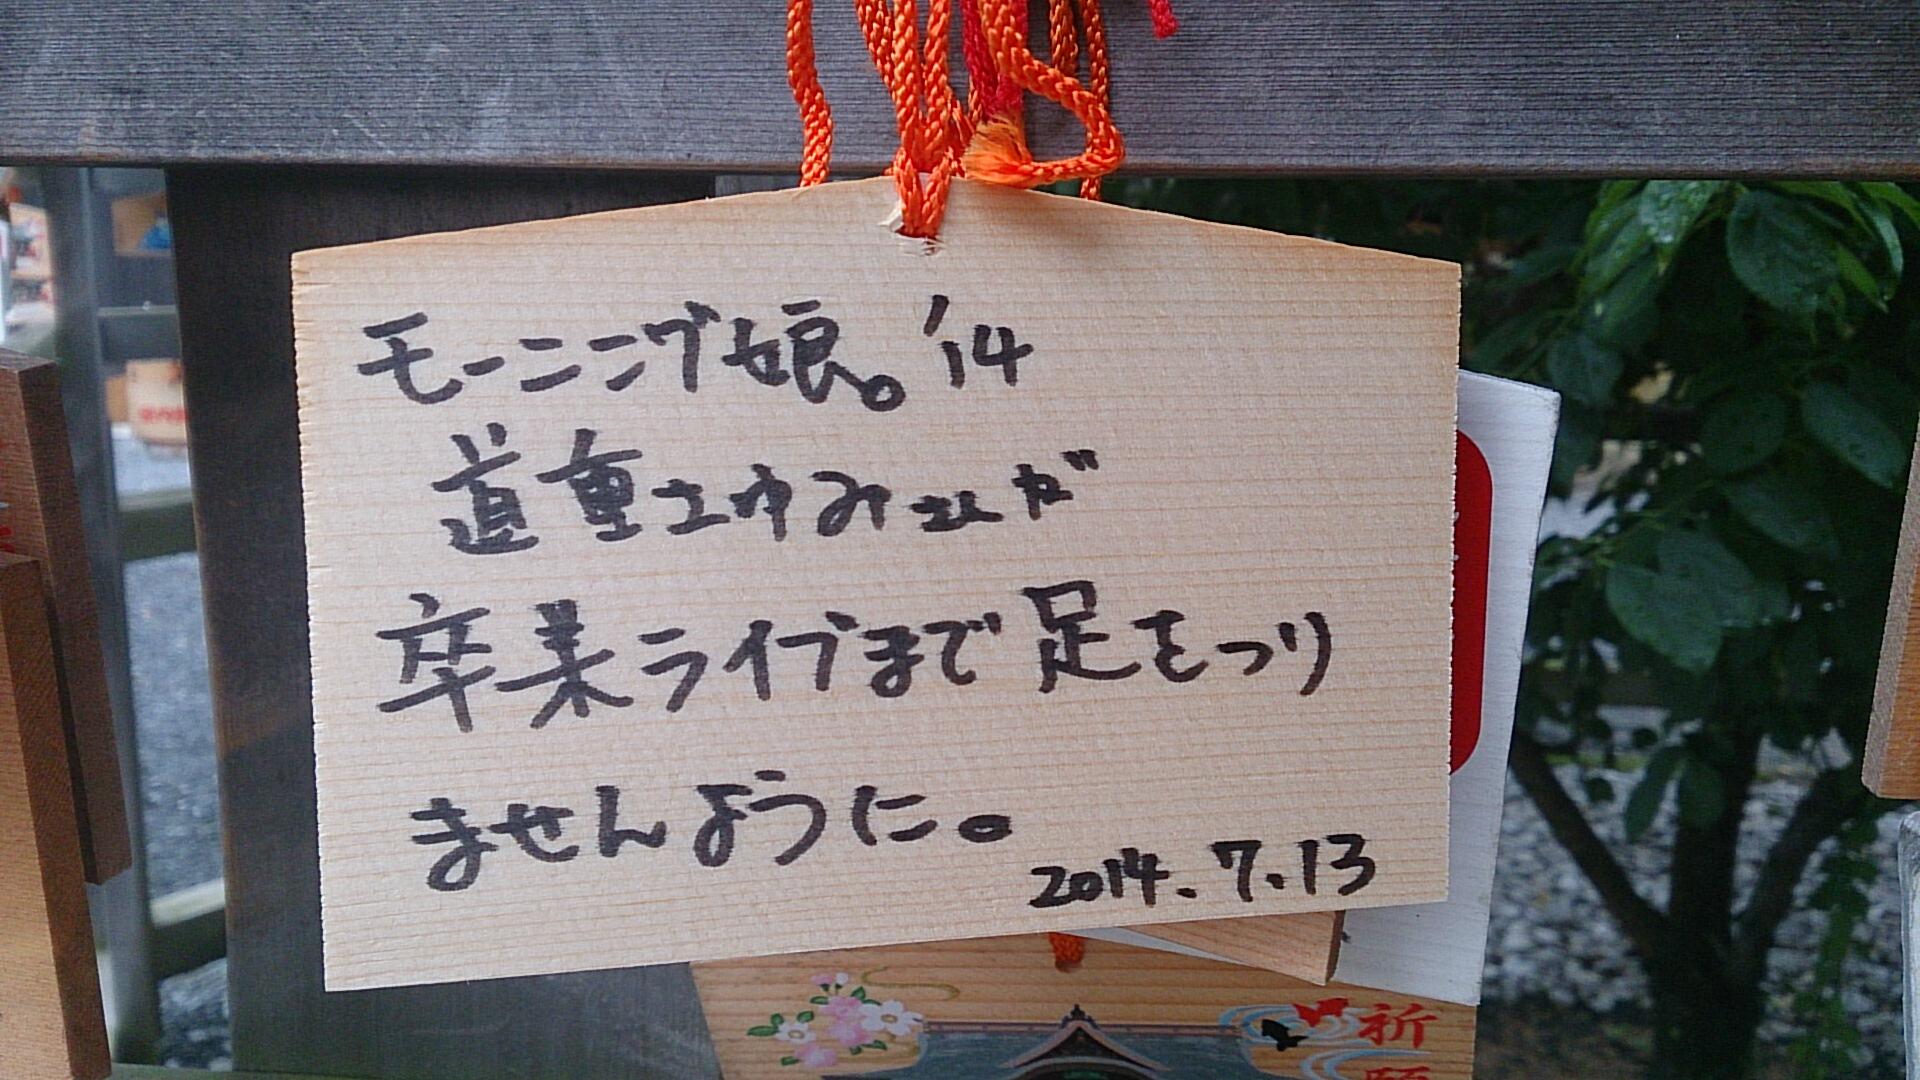 モーニング娘。'14
道重さゆみさんが
卒業ライブまで足をつり
ませんように。
2014.7.13
祈
願